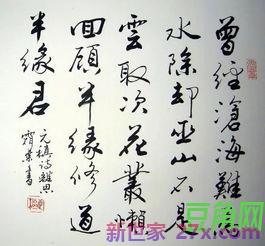 曾經滄海難為
水除却巫山不是
雲取次花叢懶
回顧半緣修道
半緣君
元稹詩離思
書
豆角网
新世家 27x.com